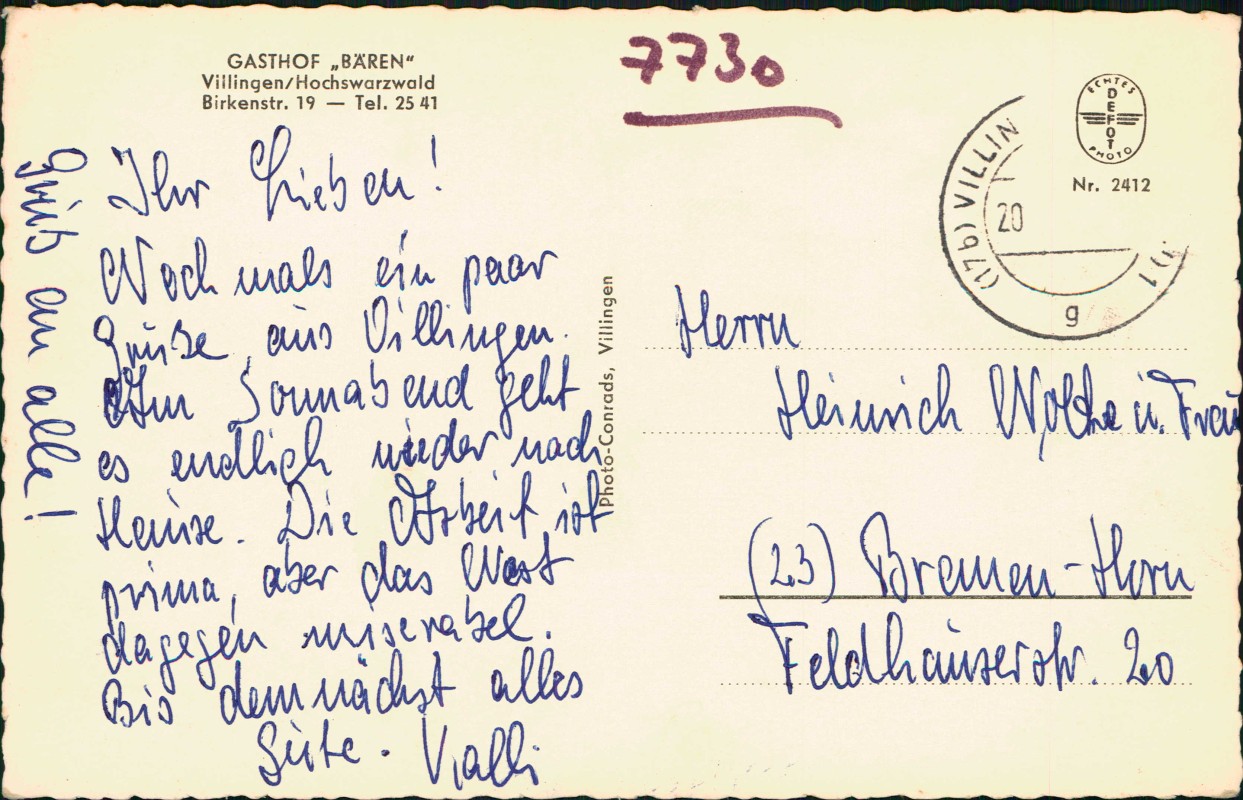 GASTHOF „BÄREN“
Villingen/Hochswarzwald
Birkenstr. 19 — Tel. 25 41
7730
ECHTES
DEFOT
PHOTO
Nr. 2412
(17b) VILLIN
20
g
1
Ihr Lieben!
Noch mals ein paar
Grüße aus Villingen.
Am Sonnabend geht
es endlich wieder nach
Hause. Die Arbeit ist
prima, aber das
dagegen miserabel.
Bis demnächst alles
Gute. Valli
Gruß an alle!
Photo-Conrads, Villingen
Herrn
Heinrich u. Frau
(23) Bremen-Horn
Feldhäuserstr. 20